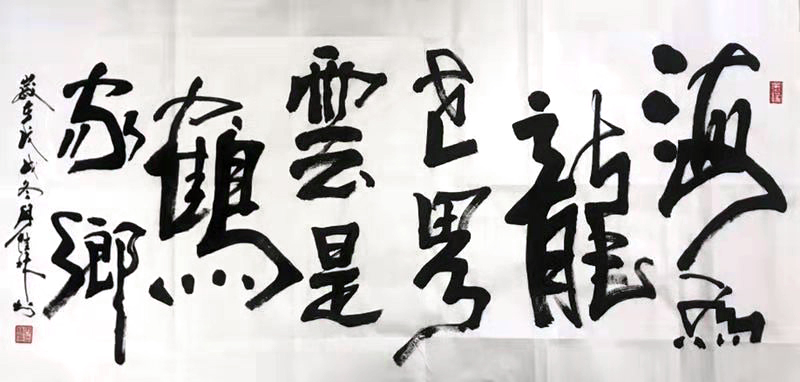 海為
龍
世界
雲是
鶴
家鄉
歲在戊戌冬月